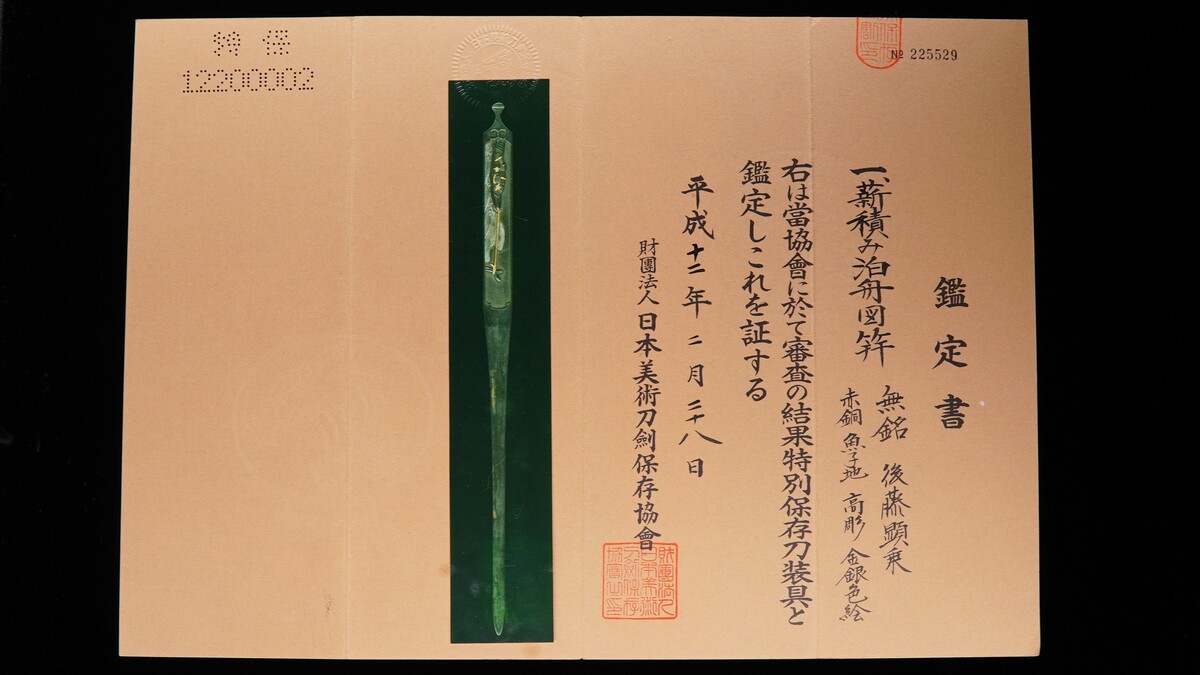 № 225529
鑑定書
一、薪積み泊舟図笄
無銘 後藤顕乗
赤銅 魚子地 高彫 金銀色絵
右は當協會に於て審査の結果特別保存刀装具と
鑑定しこれを証する
平成十二年二月二十八日
財團法人 日本美術刀劍保存協會
特保
12200002